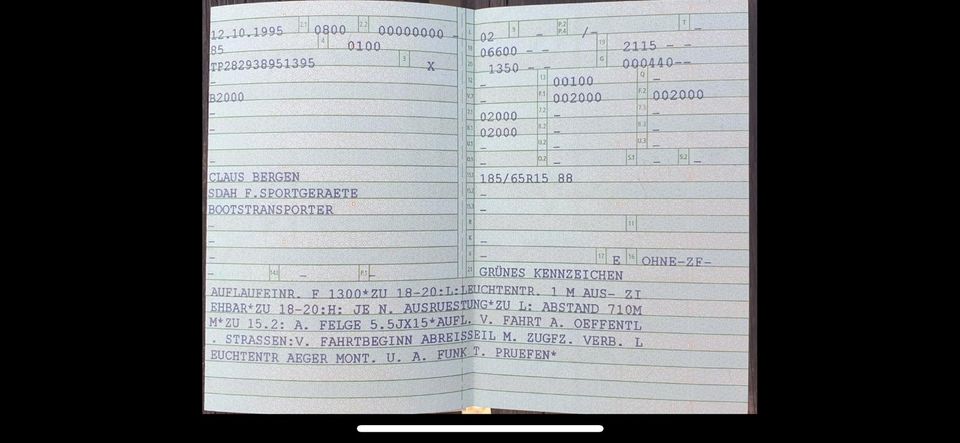 12.10.1995 2.1 0800 2.2 00000000 -
85 4 0100
TP282938951395 3 X
-
B2000
-
-
-
CLAUS BERGEN
SDAH F.SPORTGERAETE
BOOTSTRANSPORTER
-
-
-
- 14.1 - P.1 -
L 02 9 - P.2 P.4 /- T -
18 06600 - - 19 2115 - -
20 1350 - - G 000440--
12 - 13 00100 Q -
V.7 - F.1 002000 F.2 002000
7.1 02000 7.2 - 7.3 -
8.1 02000 8.2 - 8.3 -
U.1 - U.2 - U.3 -
O.1 - O.2 - S.1 - S.2 -
15.1 185/65R15 88
15.2 -
15.3 -
R 11
K -
6 - 17 E 16 OHNE-ZF-
21 GRÜNES KENNZEICHEN
AUFLAUFEINR. F 1300*ZU 18-20:L:LEUCHTENTR. 1 M AUS- ZI
EHBAR*ZU 18-20:H: JE N. AUSRUESTUNG*ZU L: ABSTAND 710M
M*ZU 15.2: A. FELGE 5.5JX15*AUFL. V. FAHRT A. OEFFENTL
. STRASSEN:V. FAHRTBEGINN ABREISSEIL M. ZUGFZ. VERB. L
EUCHTENTR AEGER MONT. U. A. FUNK T. PRUEFEN*